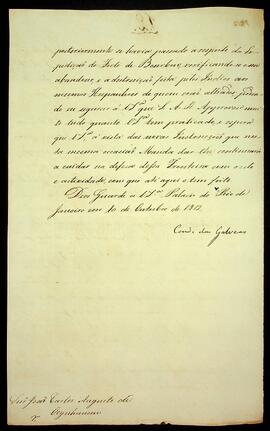 posteriormente se havia passado a respeito da ex-
pedição do Forte de Bourbon, verificando o seu
abandono, e a destruição feita pelos Indios aos
mesmos Hespanhoes de quem erão alliados, Podendo
-se segurar a V.Sª que S. A. R. Approvou mui-
to tudo quanto V.Sª tem praticado, e espera
que V.Sª á vista das novas Instrucções que nes-
ta mesma occasião Manda dar lhe continuará
a cuidar na defeza dessa Fronteira com o zelo
e actividade, com que até aqui o tem feito.
Deos Guarde a V.Sª Palacio do Rio de
Janeiro em 10 de Outubro de 1812.
Conde das Galveas
Snr João Carlos Augusto de
Oeynhausen